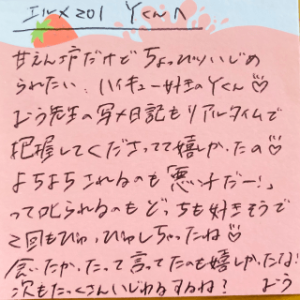 エルメ201 Yくんへ
甘えん坊だけどちょっぴりいじめ
られたい、ハイキュー好きのYくん♡
おう先生の写メ日記もリアルタイムで
把握してくださってて嬉しかったの♡
よちよちされるのも「悪い子だー!」
って叱られるのもどっちも好きそうで
2回もぴゅっぴゅしちゃったね♡
会いたかったって言ってたのも嬉しかったな!
次もたっくさんいじわるするね?
おう